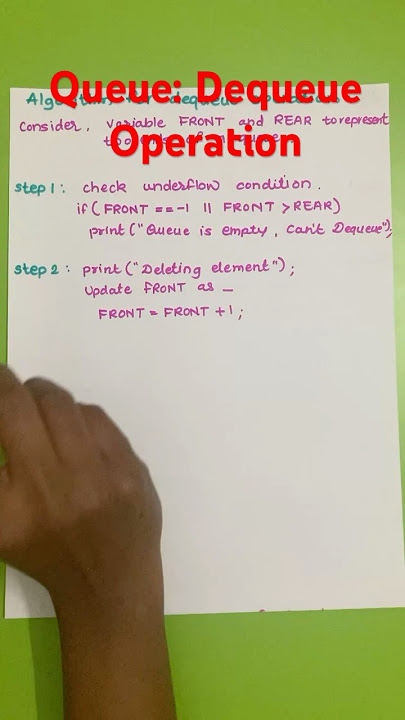 Queue: Dequeue
Operation
Algorithm for dequeue
Consider, variable FRONT and REAR to represent
step 1: check underflow condition.
if (FRONT == -1 || FRONT > REAR)
print ("Queue is empty, Can't Dequeue");
step 2: print ("Deleting element");
Update FRONT as _
FRONT = FRONT +1;